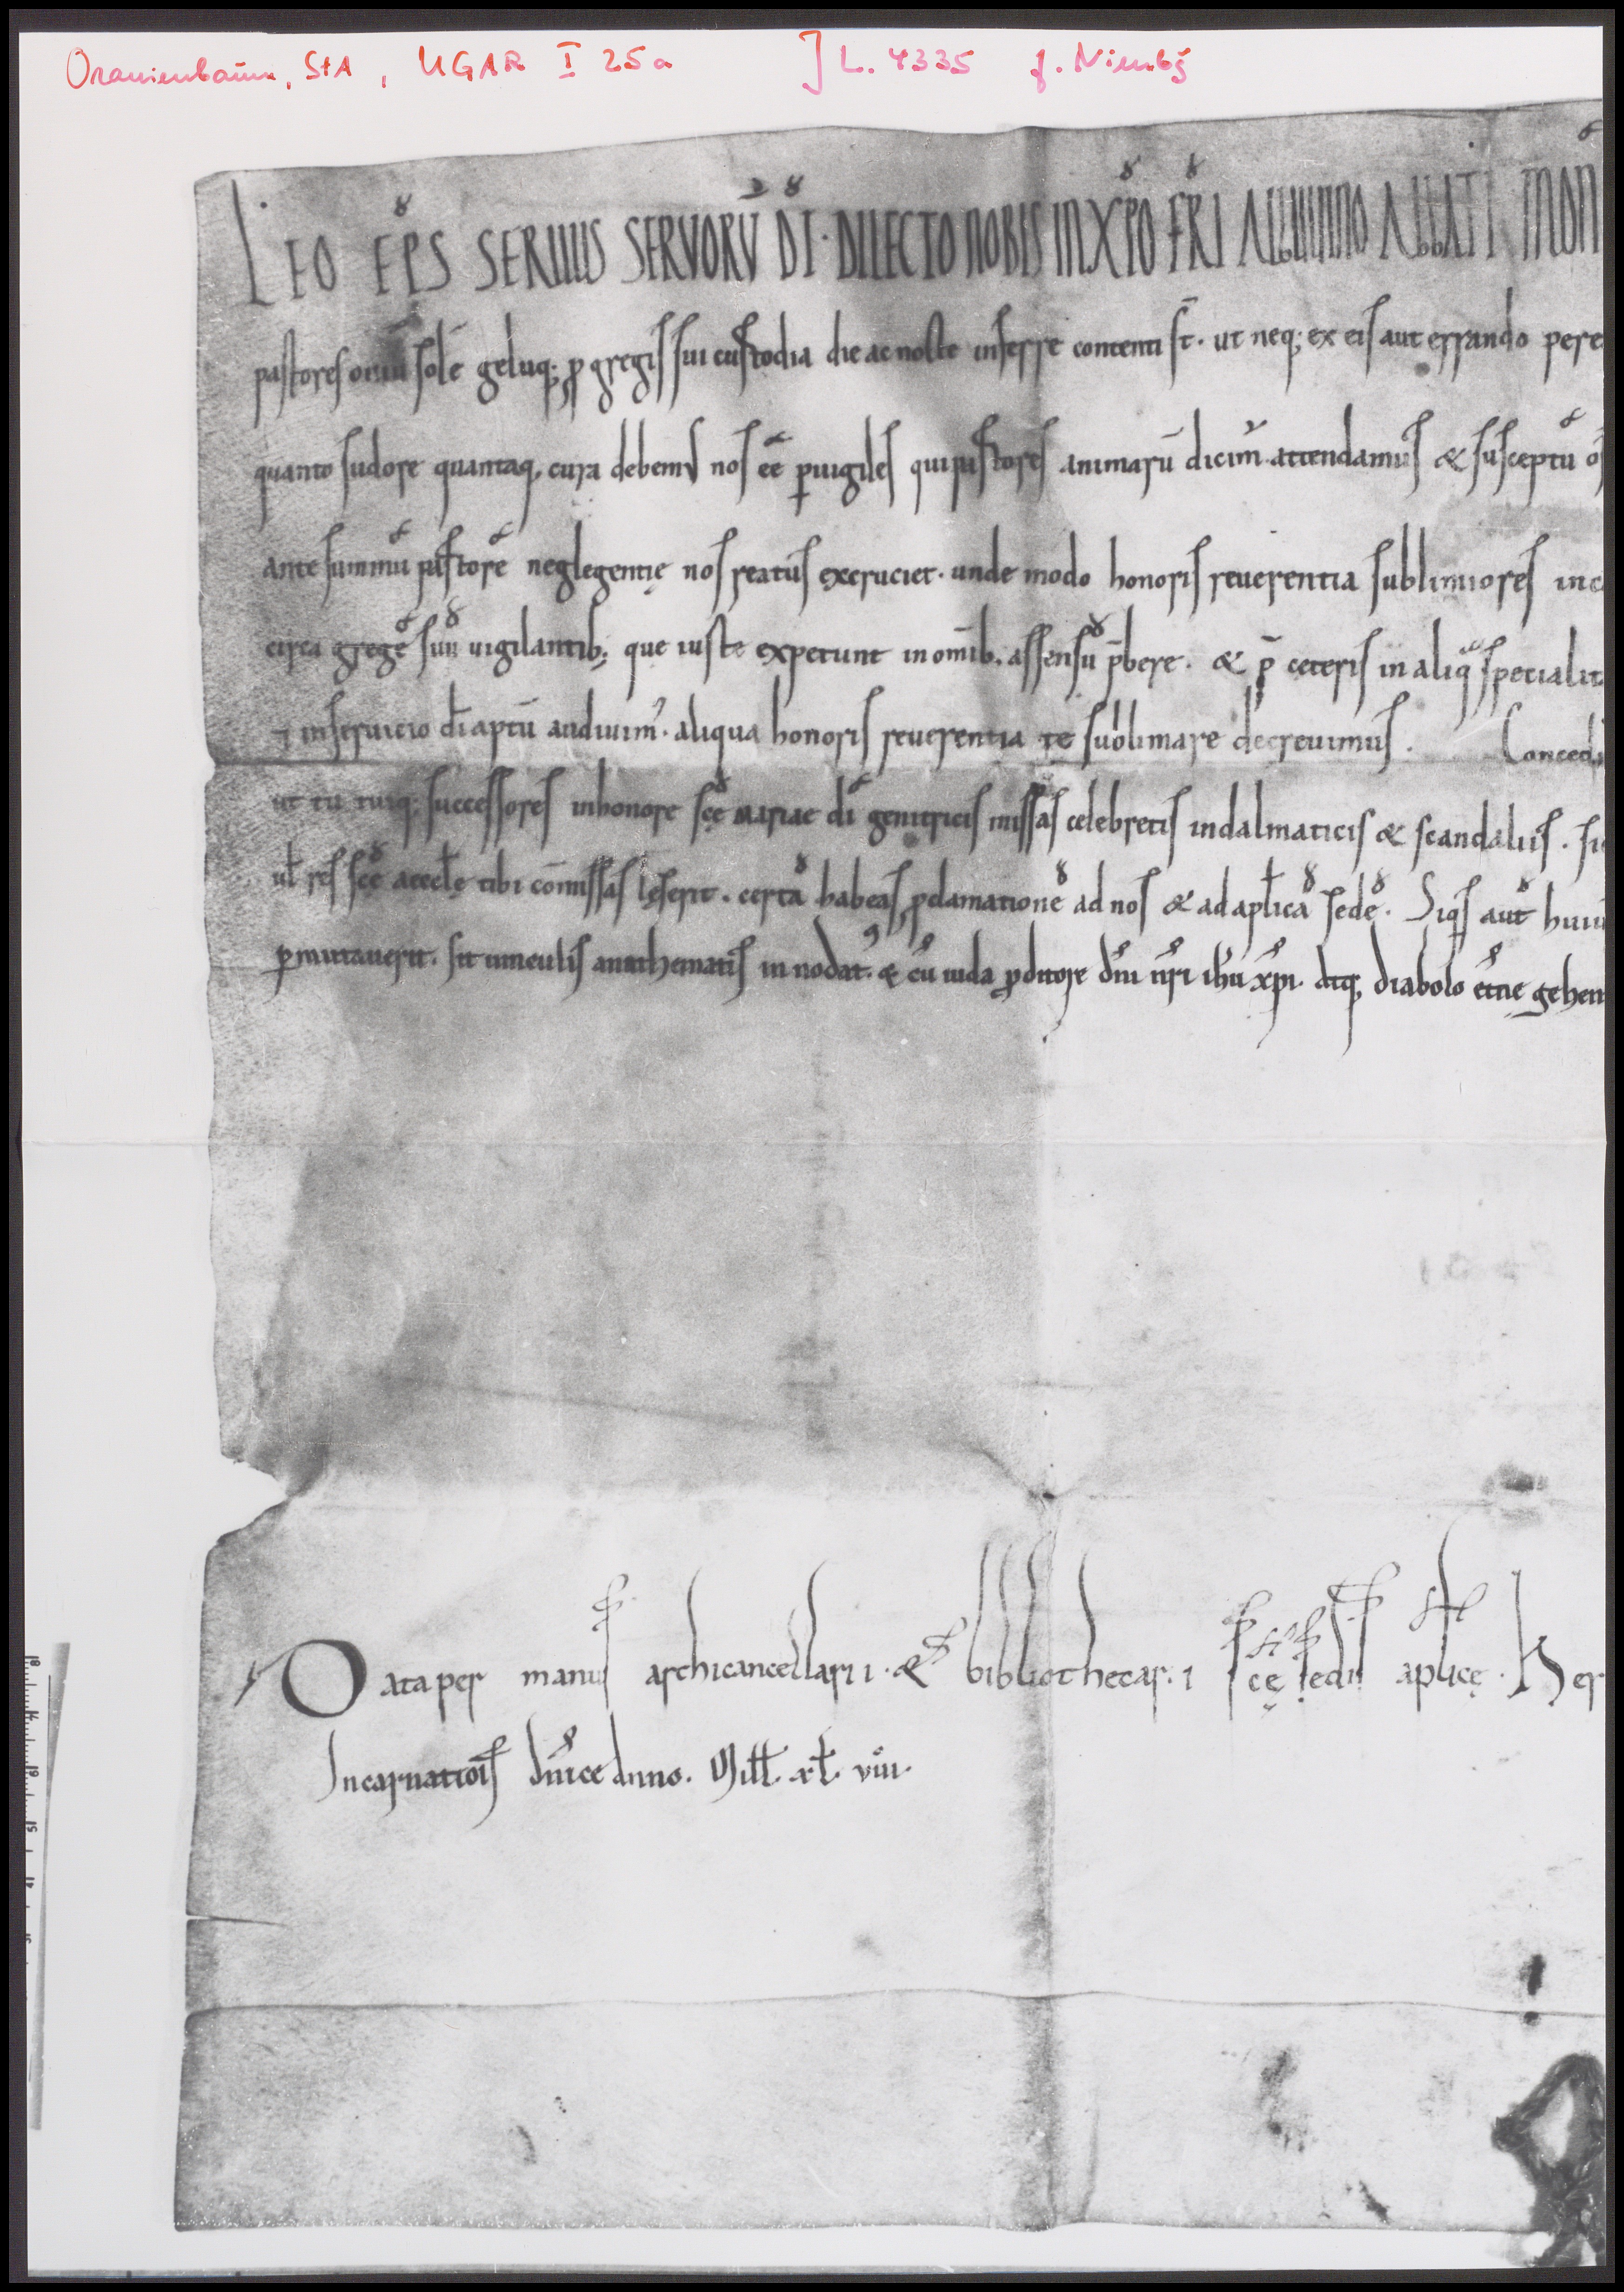 Oranienbaum, StA, UGAR I 25a JL. 4335 f. Nienbg
LEO EP̄S SERUUS SERVORŪ DĪ · DILECTO NOBIS IN XP̄O FR̄I ALBUUINO ABBATI MON
pastores ouiū solē geluq; ꝓ gregis sui custodia die ac nocte inferre contenti st̄ · ut neq; ex eis aut errando pere
quanto sudore quantaq; cura debem' nos eē ꝑuigiles qui pastores animarū dicim̄ attendamus & susceptū
ante summū pastorē neglegentię nos reatus excruciet · unde modo honoris reuerentia sublimiores in
circa gregē suū uigilantib; que iuste expetunt in om̄ib; assensū p̄bere · & p̄ ceteris in aliq specialit
⁊ in seruicio dī aptū audiuim' · aliqua honoris reuerentia te sublimare decreuimus · Concedi
ut tu tuiq; successores in honore scę mariae dī genitricis missas celebretis in dalmaticis & scandaliis · si
ul̄ res scę aecclę tibi cōmissas lęserit · certā habeas ꝓclamationē ad nos & ad aplicā sedē · Siqs aut̄ huiu
ꝑmutauerit · sit uinculis anathematis innodat' · & cū iuda ꝓditore dn̄i nr̄i ihu xp̄i · atq; diabolo etn̄e gehen
Data per manus archicancellarii · & bibliothecarii scę sedis aplicę · Her
Incarnatiois dn̄ice anno · Mill̄ · xl̄ · viiii ·
8 7 6 5 4